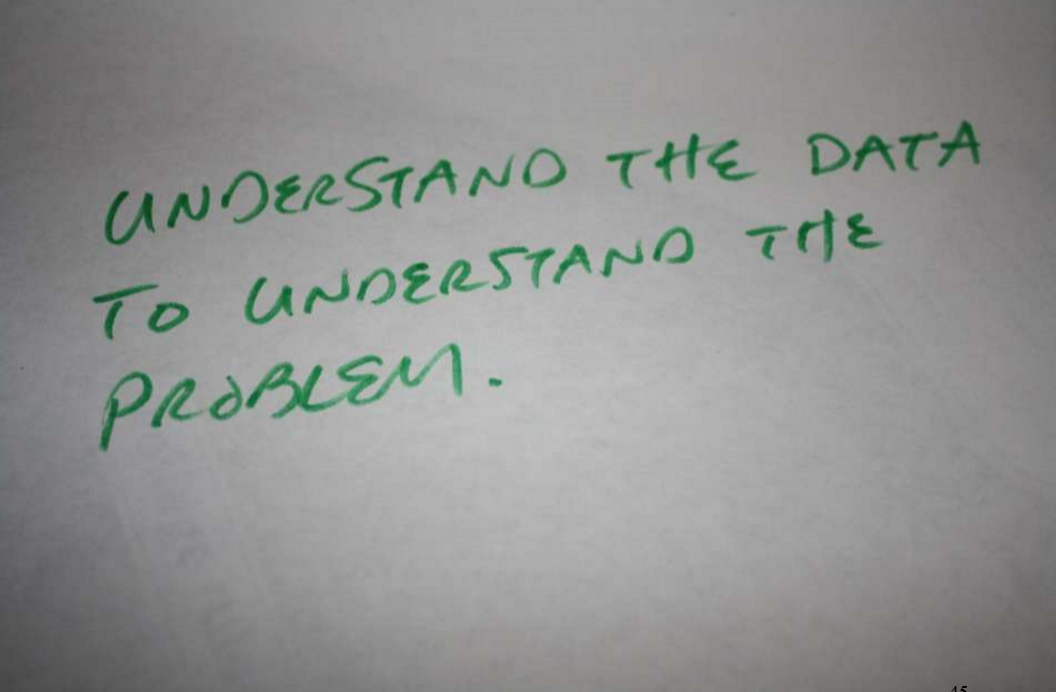 UNDERSTAND THE DATA
TO UNDERSTAND THE
PROBLEM.
45